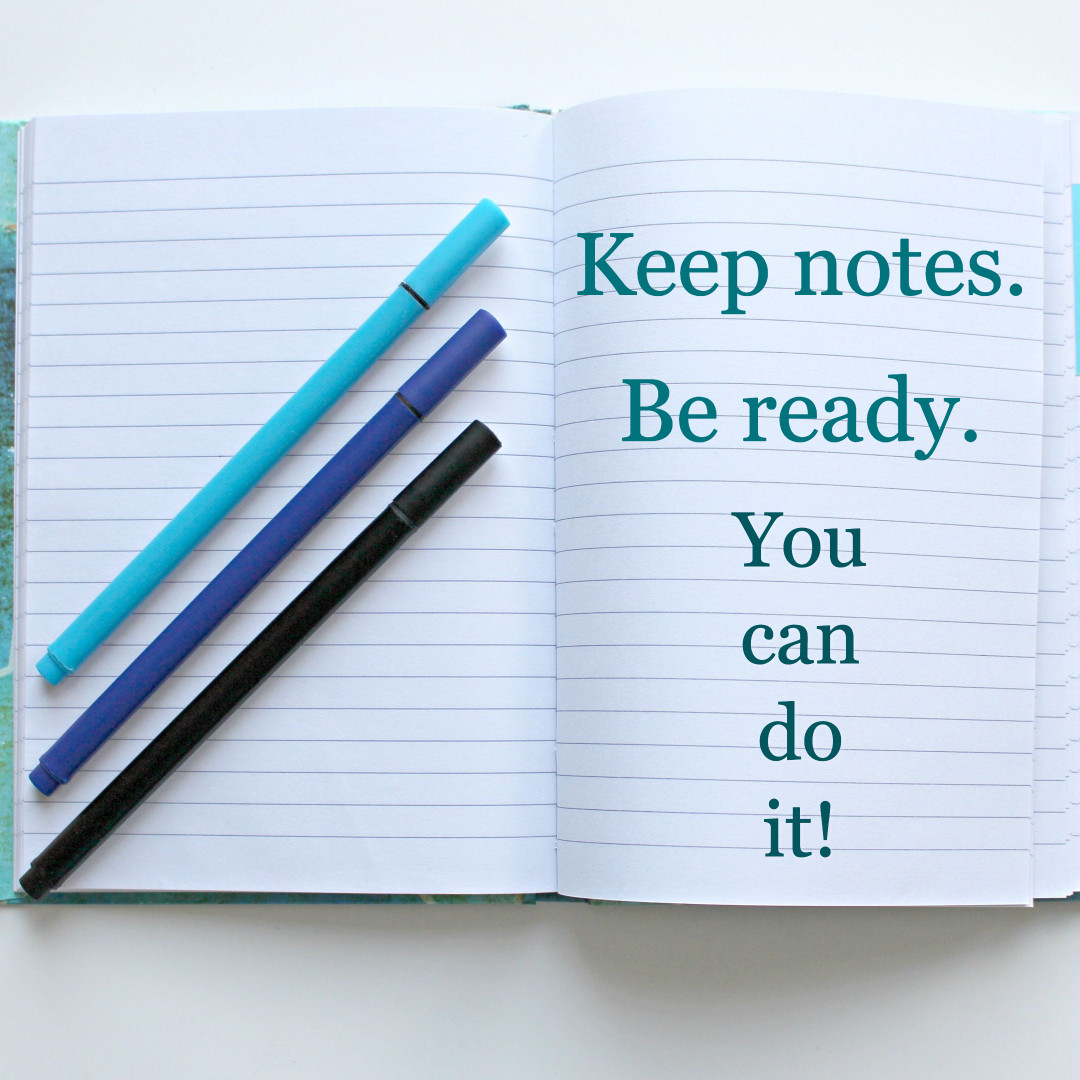 Keep notes.
Be ready.
You
can
do
it!